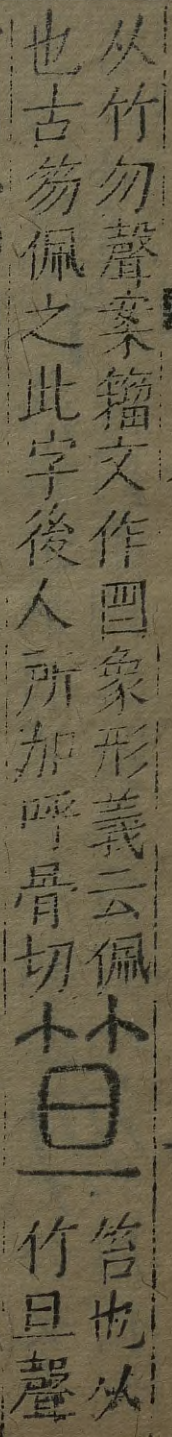 从竹勿聲案籀文作象形義云佩
也古笏佩之此字後人所加呼骨切
笪
笞也从
竹旦聲